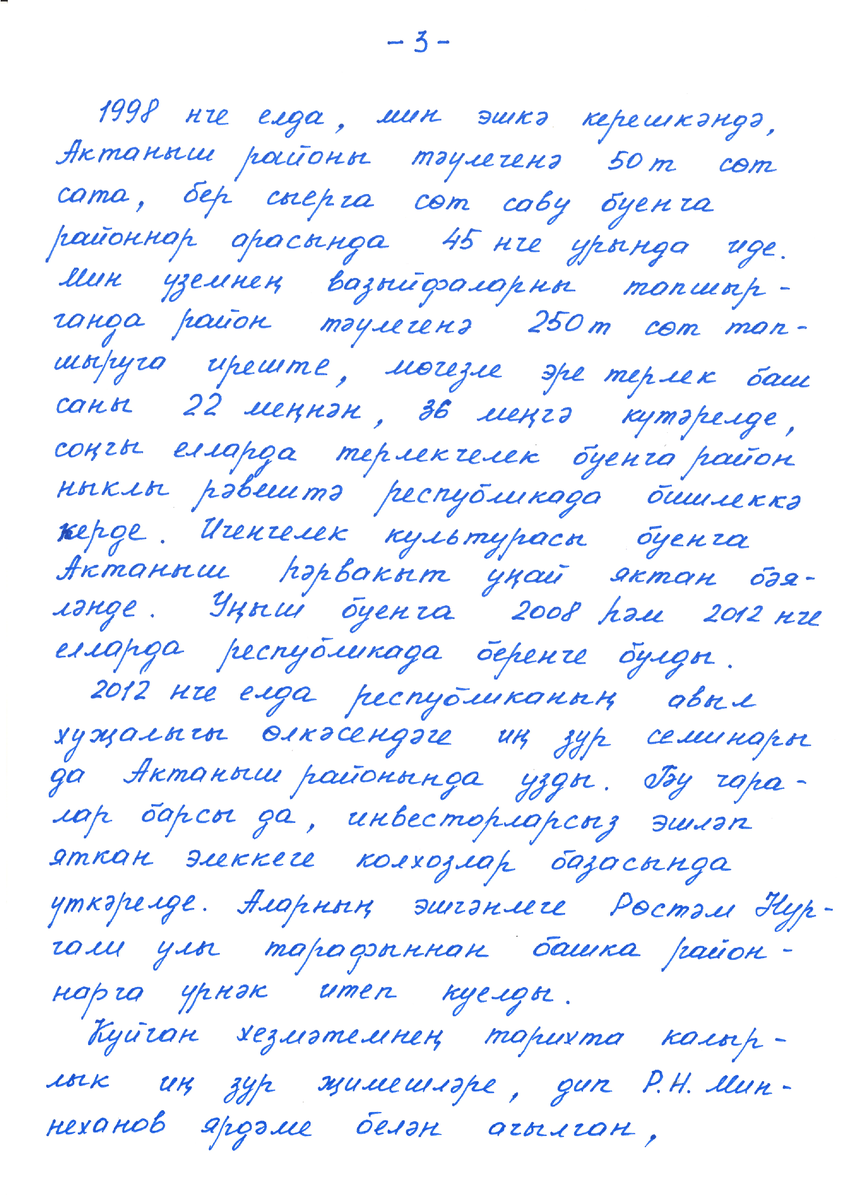 - 3 -
1998 нче елда, мин эшкә керешкәндә,
Актаныш районы тәүлегенә 50 т сөт
сата, бер сыерга сөт саву буенча
районнар арасында 45 нче урында иде.
Мин үземнең вазыйфаларны тапшыр-
ганда район тәүлегенә 250 т сөт тап-
шыруга иреште, мөгезле эре терлек баш
саны 22 меңнән, 36 меңгә күтәрелде,
соңгы елларда терлекчелек буенча район
ныклы рәвештә республикада бишлеккә
керде. Игенчелек культурасы буенча
Актаныш һәрвакыт уңай яктан бәя-
ләнде. Уңыш буенча 2008 һәм 2012 нче
елларда республикада беренче булды.
2012 нче елда республиканың авыл
хуҗалыгы өлкәсендәге иң зур семинары
да Актаныш районында узды. Бу чара-
лар барсы да, инвесторларсыз эшләп
яткан элеккеге колхозлар базасында
үткәрелде. Аларның эшчәнлеге Рөстәм Нур-
гали улы тарафыннан башка район-
нарга үрнәк итеп куелды.
Куйган хезмәтемнең тарихта калыр-
лык иң зур җимешләре, дип Р.Н. Мин-
неханов ярдәме белән ачылган,